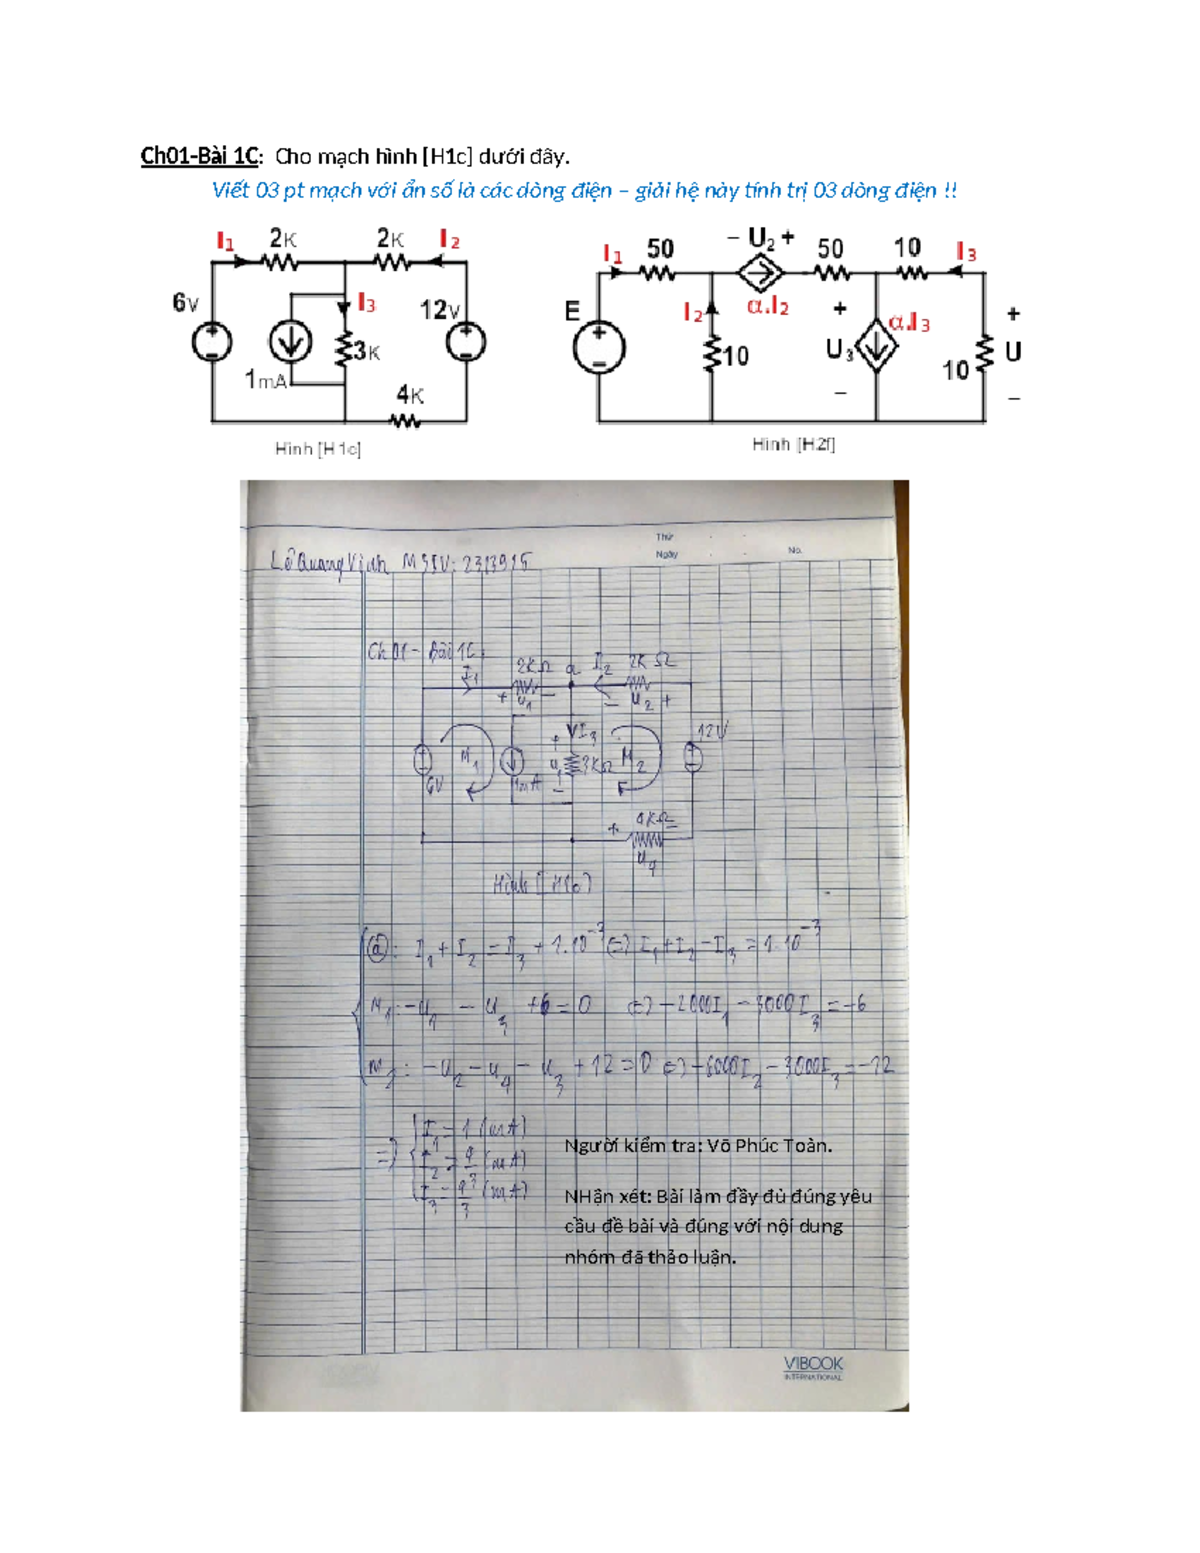 Ch01-Bài 1C: Cho mạch hình [H1c] dưới đây.
Viết 03 pt mạch với ẩn số là các dòng điện – giải hệ này tính trị 03 dòng điện !!
I1 2K 2K I2
6V
I3
12V
3K
1mA
4K
Hình [H1c]
I1 50 – U2 + 50 10 I3
E
I2
α.I2
10
+
U3
–
α.I3
10
+
U
–
Hình [H2f]
Thứ
Ngày No.
Lê Quang Vinh MSSV: 2313915
Ch01 - Bài 1C:
I1 2KΩ a I2 2KΩ
+ u1 – – u2 +
M1
6V
1mA
+
I3
3KΩ
–
M2
12V
+ 4KΩ –
u4
Hình [H1c]
(a): I1 + I2 = I3 + 1.10⁻³ (=) I1 + I2 – I3 = 1.10⁻³
M1: –u1 – u3 + 6 = 0 (=) –2000I1 – 3000I3 = –6
–u2 – u4 – u3 + 12 = 0 (=) –6000I2 – 3000I3 = –12
=) I1 = 1 (mA)
(mA)
(mA)
Người kiểm tra: Võ Phúc Toàn.
NHận xét: Bài làm đầy đủ đúng yêu
cầu đề bài và đúng với nội dung
nhóm đã thảo luận.
VIBOOK
INTERNATIONAL